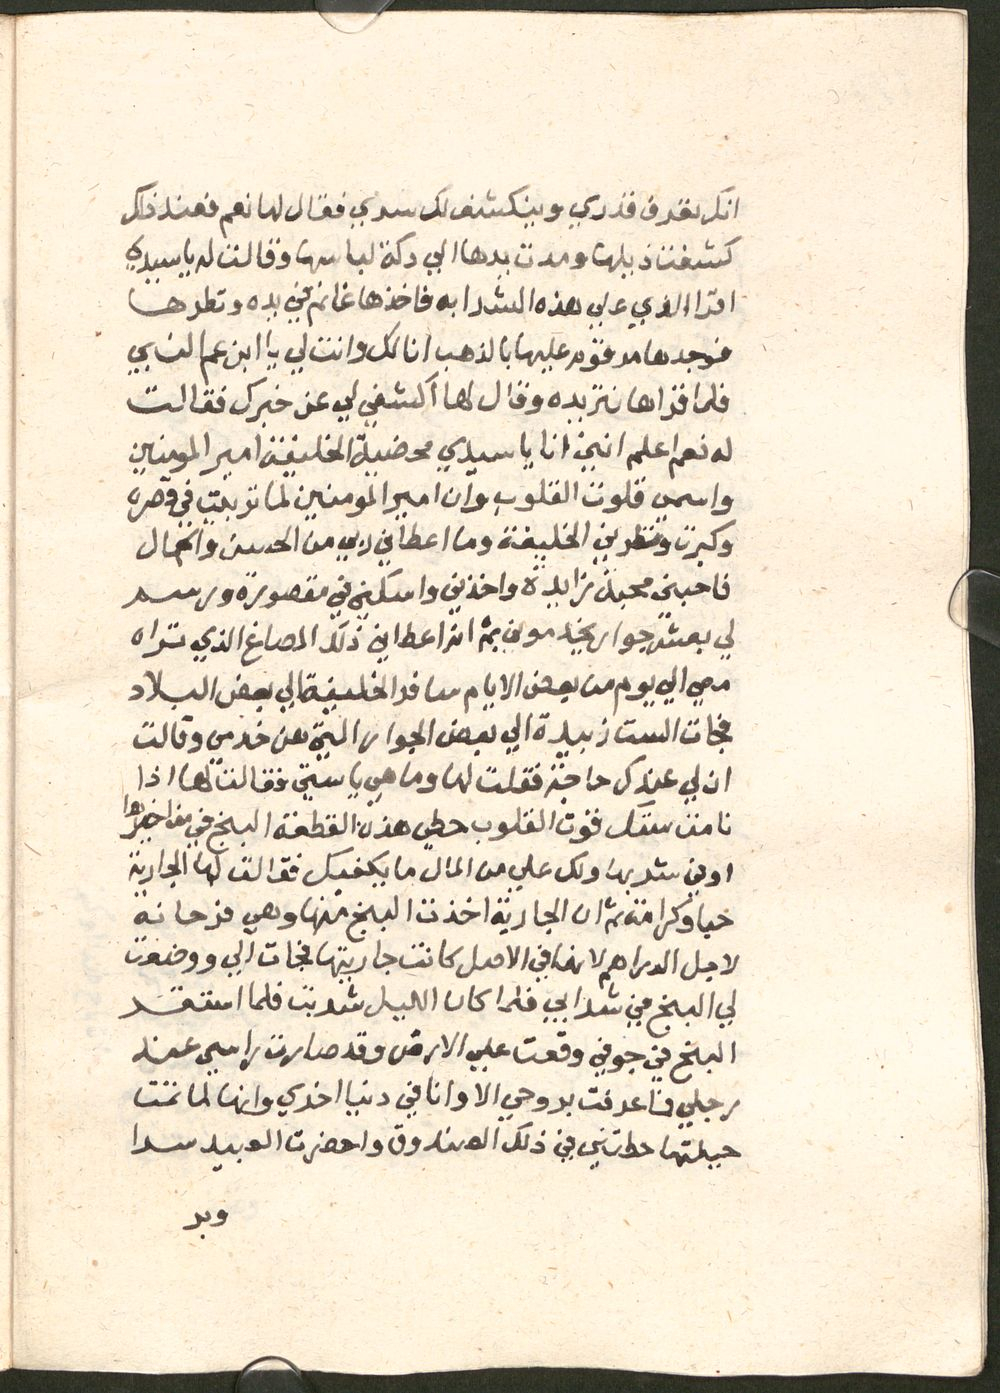 انك تعرف قدري وينكشف لك سري فقال لها نعم فعند ذلك
كشفت ذيلها ومدت يدها الي دكة لباسها وقالت له يا سيدي
اقرا الذي علي هذه الشرابه فاخذها غانم في يده ونظرها
فوجدها مرقوم عليها بالذهب انا لك وانت لي يا ابن عم النبي
فلما قراها نتر يده وقال لها اكشفي لي عن خبرك فقالت
له نعم اعلم انني انا يا سيدي محضية الخليفة امير المومنين
واسمي قلوت القلوب وان امير المومنين لما تربيت في قصره
وكبرت ونظرني الخليفة وما اعطاني ربي من الحسن والجمال
فاحبني محبة زايدة واخذني واسكنني في مقصورة ورسم
لي بعشر جوار يخدموني ثم انه اعطاني ذلك المصاغ الذي تراه
معي الي يوم من بعض الايام سافر الخليفة الي بعض البلاد
فجات الست زبيدة الي بعض الجوار التي من خدمي وقالت
ان لي عندك حاجة فقلت لها وما هي يا ستي فقالت لها اذا
نامت ستك قوت القلوب حطي هذه القطعة البنج في مناخيرها
او في شربها ولك علي من المال ما يكفيك فقالت لها الجارية
حبا وكرامة ثم ان الجارية اخذت البنج منها وهي فرحانه
لاجل الدراهم لانها في الاصل كانت جاريتها فجات الي ووضعت
لي البنج في شرابي فلما كان الليل شربت فلما استقر
البنج في جوفي وقعت علي الارض وقد صارت راسي عند
رجلي فما عرفت بروحي الا وانا في دنيا اخري وانها لما تمت
حيلتها حطتني في ذلك الصندوق واحضرت العبيد سرا
وبر